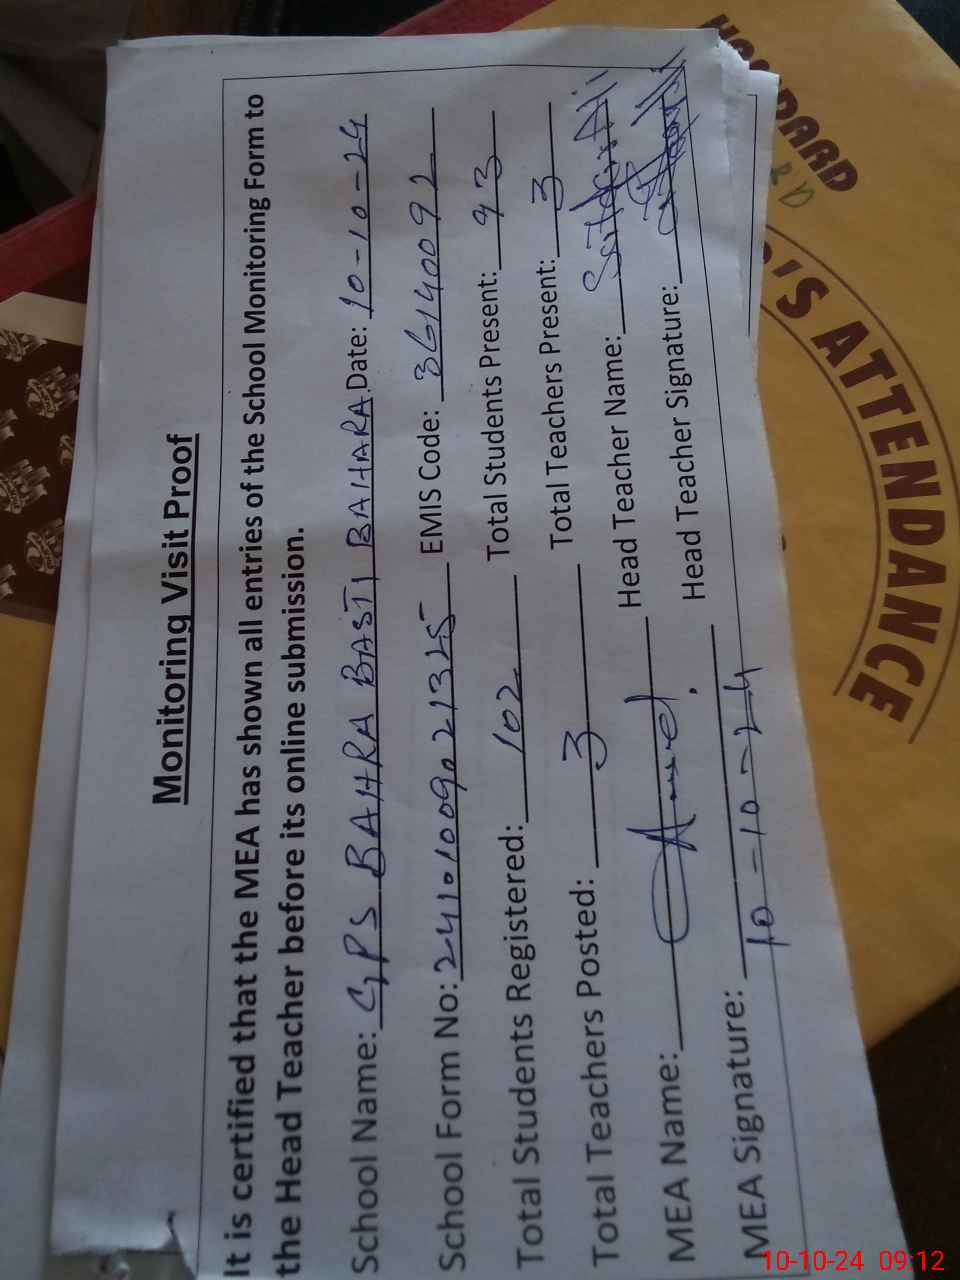 Monitoring Visit Proof
It is certified that the MEA has shown all entries of the School Monitoring Form to
the Head Teacher before its online submission.
School Name: GPS BAHRA BASTI BAHARA Date: 10-10-24
School Form No: 24101009021325 EMIS Code: 36140092
Total Students Registered: 102 Total Students Present: 93
Total Teachers Posted: 3 Total Teachers Present: 3
MEA Name: Head Teacher Name:
MEA Signature: Head Teacher Signature:
10-10-24
'S ATTENDANCE
10-10-24 09:12